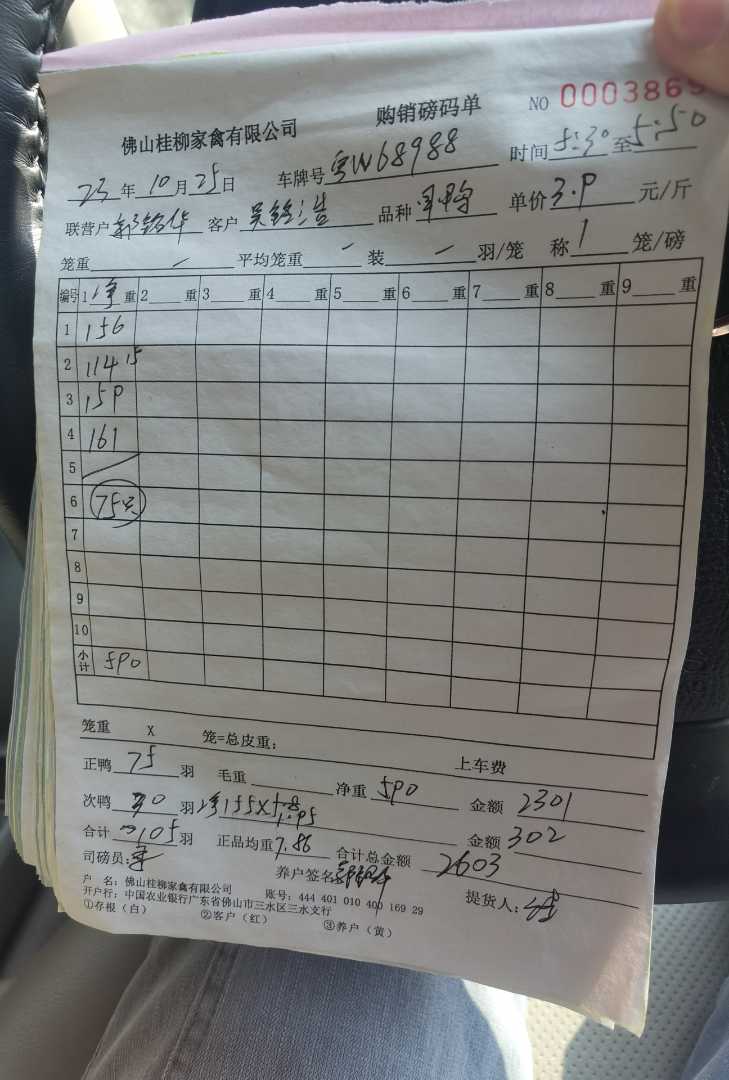 佛山桂柳家禽有限公司 购销磅码单 NO 000386
23年10月25日 车牌号粤W68988 时间5:30至5:50
联营户 华 客户 吴 浩 品种 鸭 单价3.9元/斤
笼重 — 平均笼重 — 装 — 羽/笼 称 1 笼/磅
编号 1 净 重 2 重 3 重 4 重 5 重 6 重 7 重 8 重 9 重
1 156
2 114 15
3 159
4 161
5
6 75只
7
8
9
10
小计 590
笼重 X 笼=总皮重:
上车费
正鸭 75 羽 毛重 净重 590 金额 2301
次鸭 30 羽 净155X 1.95 金额 302
合计 105羽 正品均重7.86 合计总金额 2603
司磅员: 养户签名 提货人:
户 名:佛山桂柳家禽有限公司 账号:444 401 010 400 169 29
开户行:中国农业银行广东省佛山市三水区三水支行
①存根(白) ②客户(红) ③养户(黄)